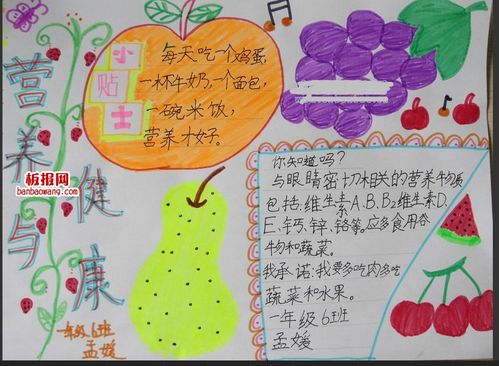 营养与健康
小贴士
每天吃一个鸡蛋,
一杯牛奶,一个面包,
一碗米饭,
营养才好。
板报网
banbaowang.com
你知道吗?
与眼睛密切相关的营养物质
包括:维生素A、B、B2维生素D、
E、钙、锌、铬等。应多食用谷
物和蔬菜。
我承诺:我要多吃肉多吃
蔬菜和水果。
一年级6班
孟媛
一年级6班
孟媛